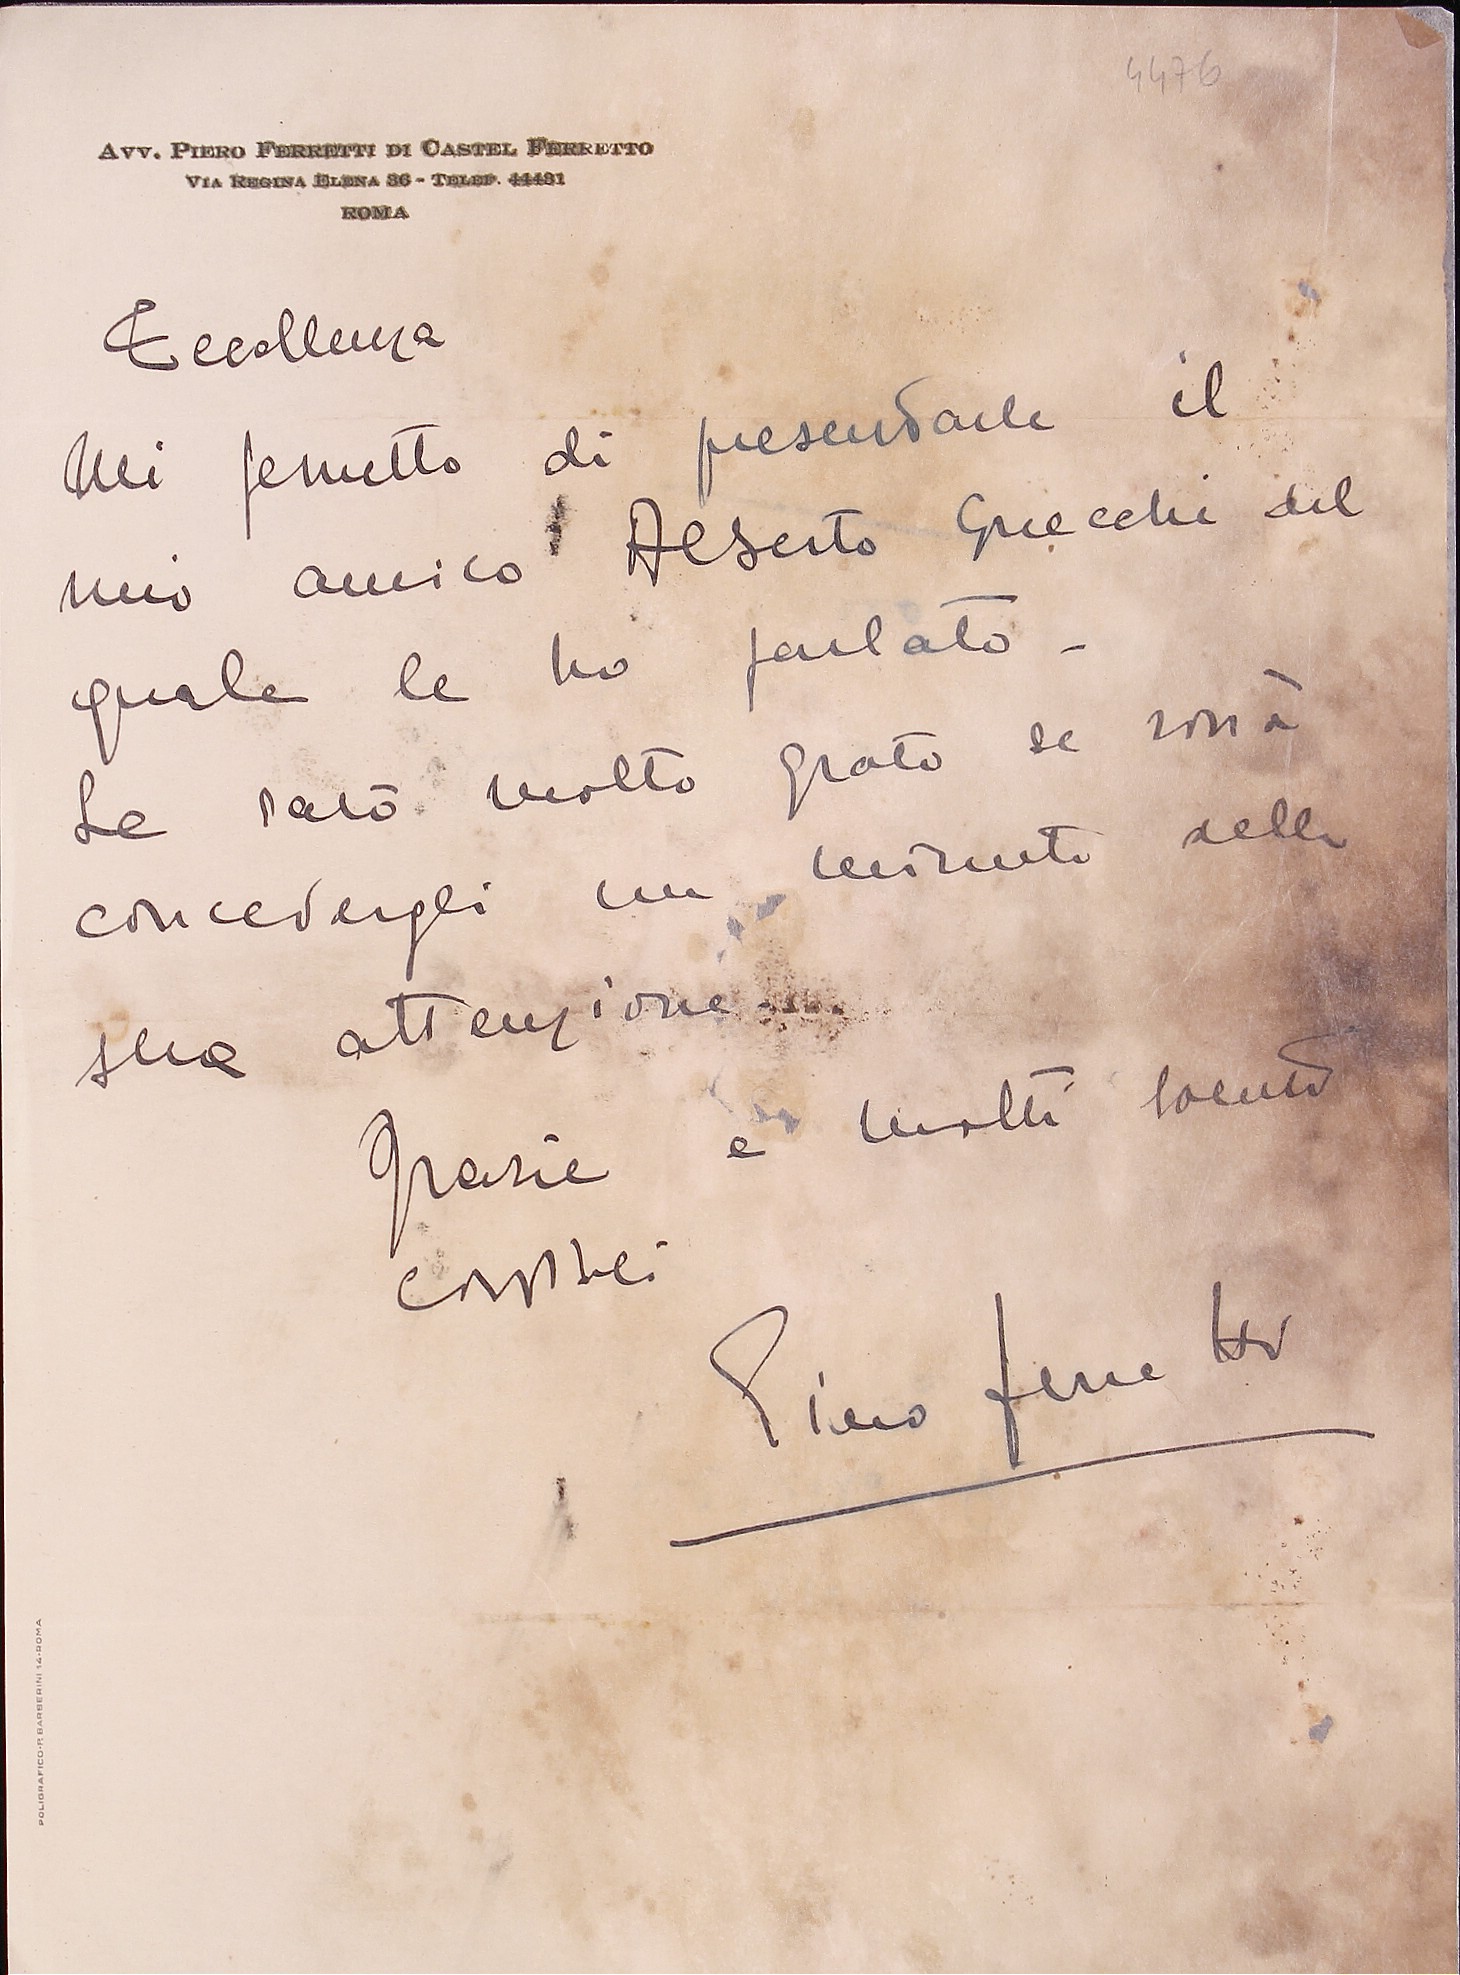 4476
AVV. PIERO FERRETTI DI CASTEL FERRETTO
VIA REGINA ELENA 36 - TELEF. 44481
ROMA
Eccellenza
Mi permetto di presentarle il
mio amico Alberto Grecchi del
quale le ho parlato -
Le sarò molto grato se vorrà
concedergli un minuto della
sua attenzione -
Grazie e molti
Piero Ferretti
POLIGRAFICO - P. BARBERINI 14 - ROMA